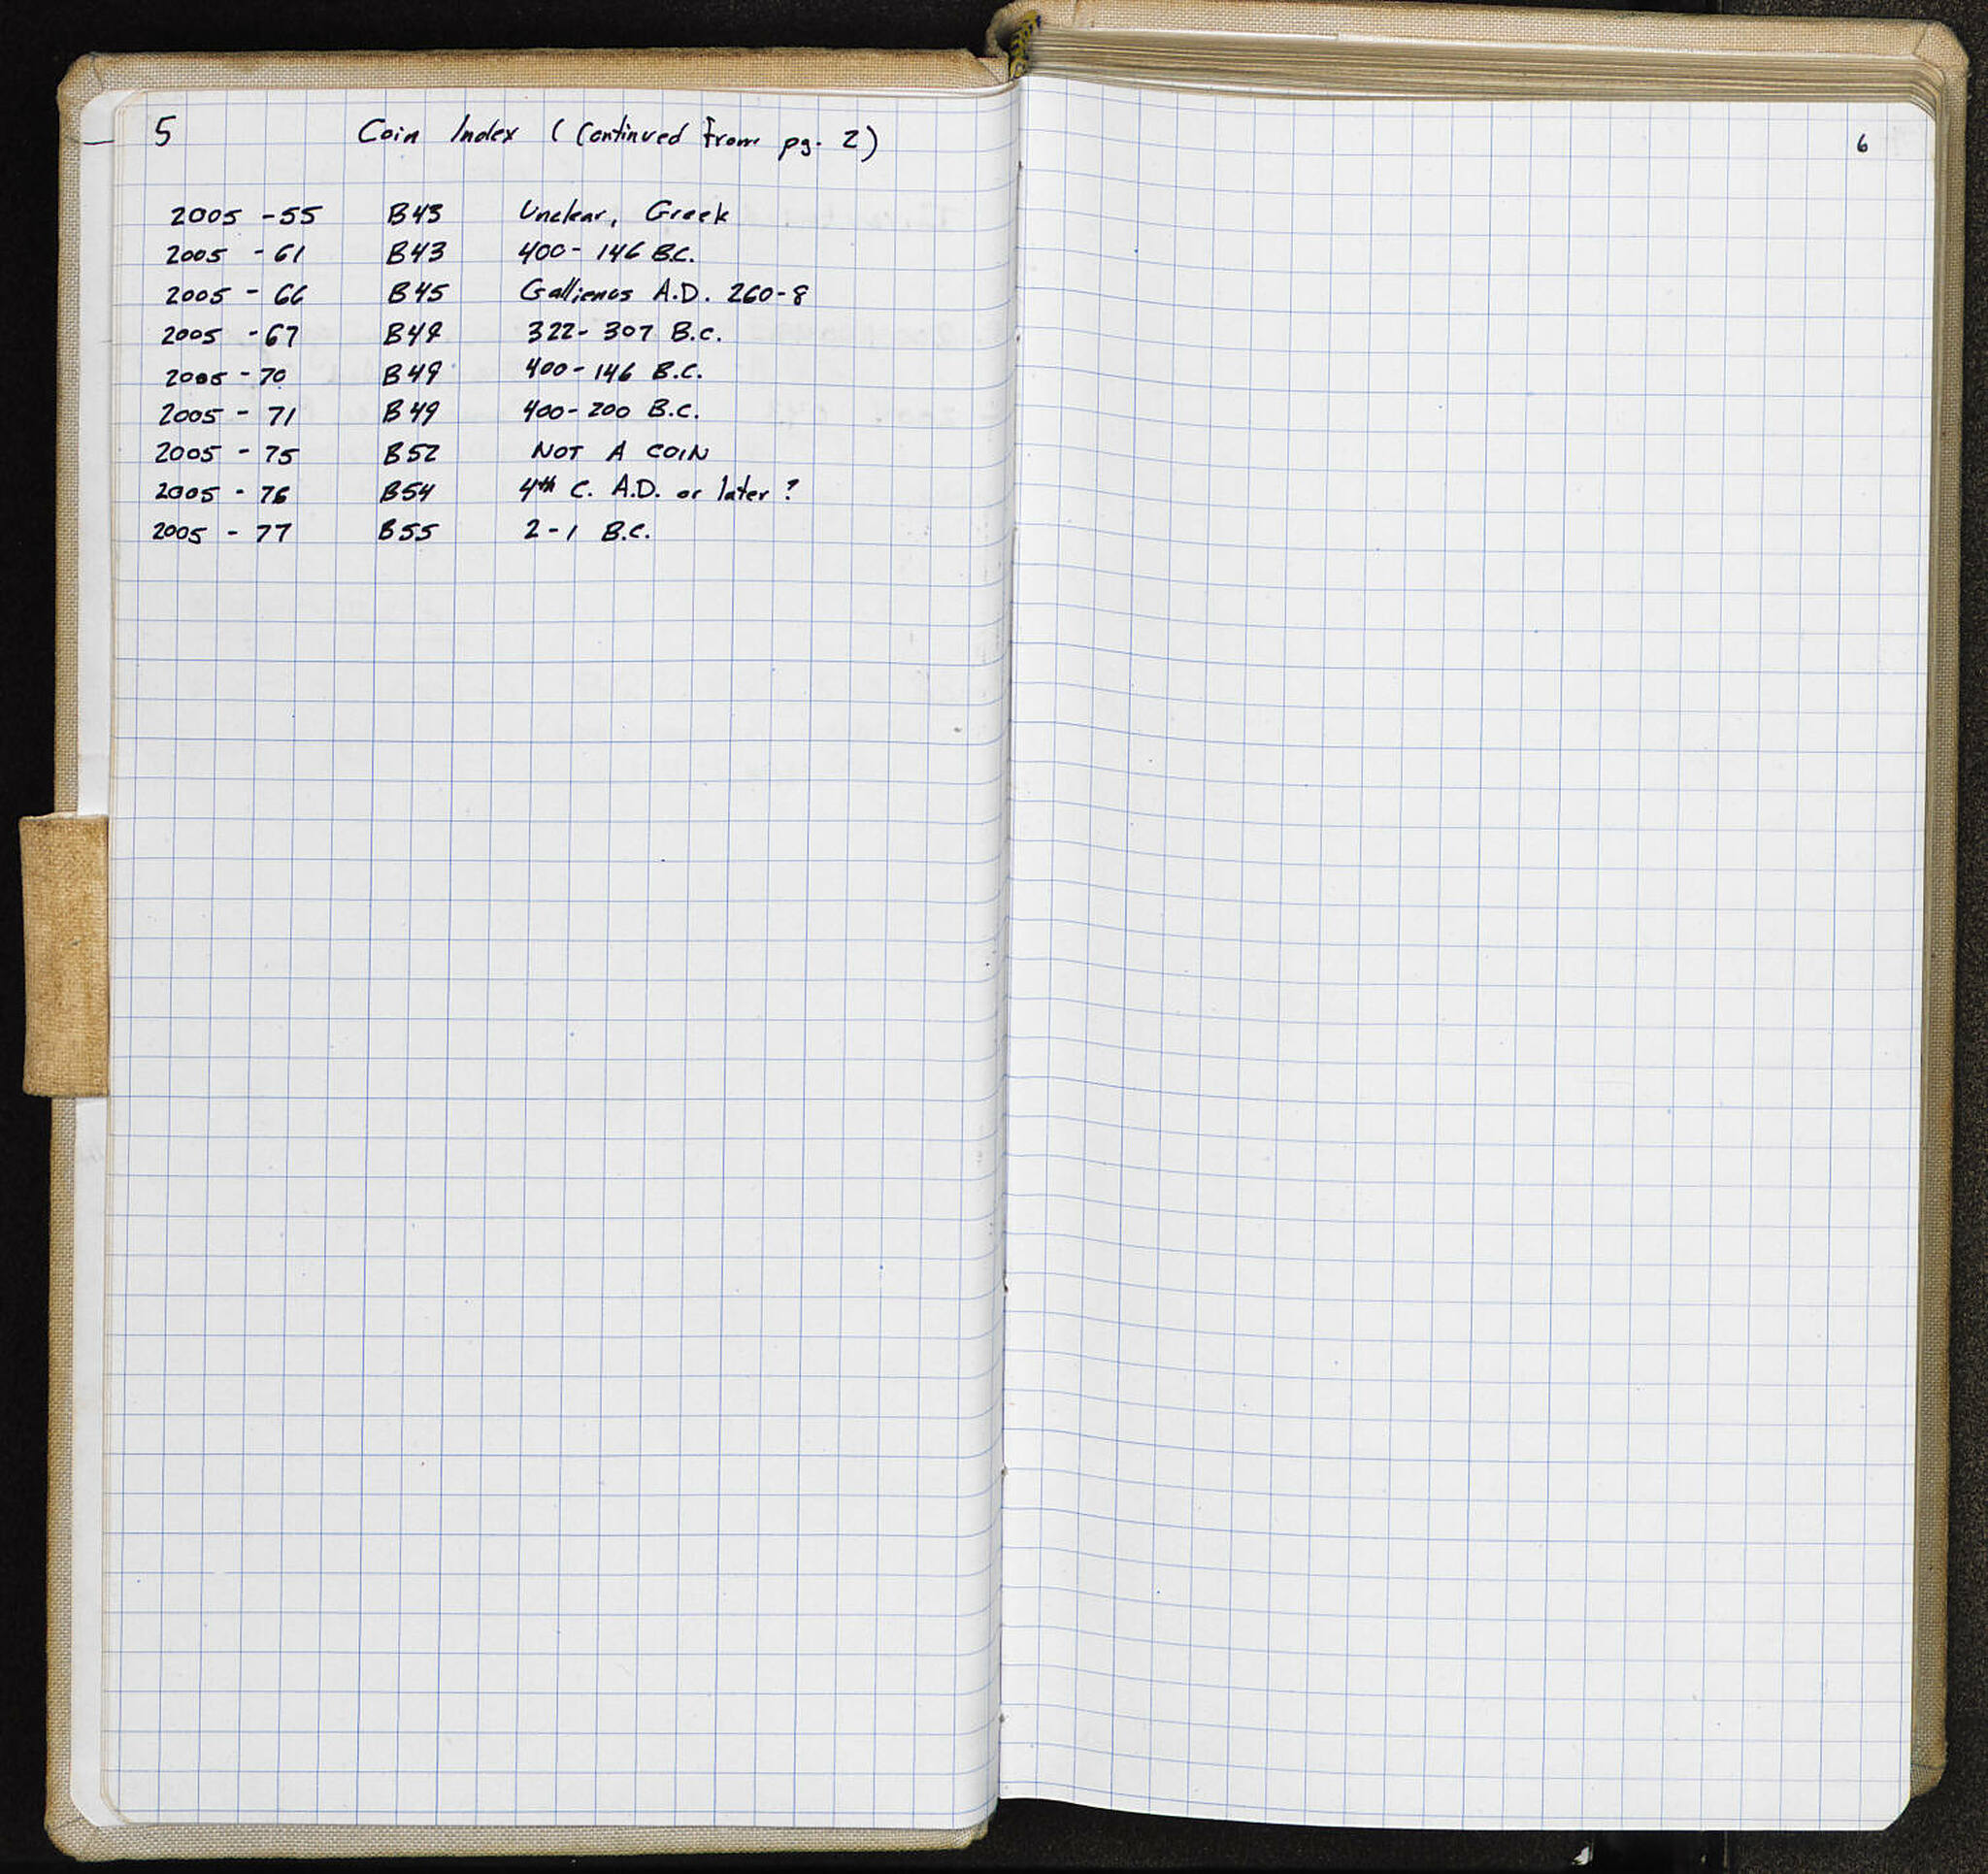 5 Coin Index (Continued From pg. 2)
2005 - 55 B43 Unclear, Greek
2005 - 61 B43 400 - 146 B.C.
2005 - 66 B45 Gallienus A.D. 260-8
2005 - 67 B49 322 - 307 B.C.
2005 - 70 B49 400 - 146 B.C.
2005 - 71 B49 400 - 200 B.C.
2005 - 75 B52 NOT A COIN
2005 - 76 B54 4th C. A.D. or later ?
2005 - 77 B55 2 - 1 B.C.
6